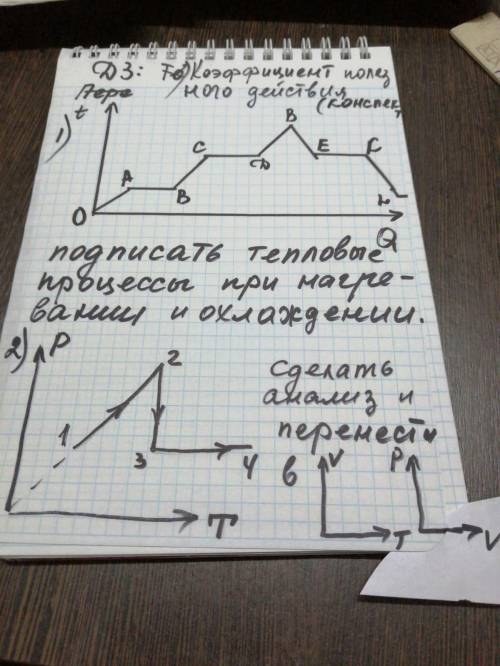 ДЗ: Коэффициент полез
ного действия
(конспект
1)
t
A
B
C
D
B
E
F
O
Q
подписать тепловые
процессы при нагре-
вании и охлаждении.
2)
P
1
2
3
4
T
сделать
анализ и
перенести
в
V
T
P
V